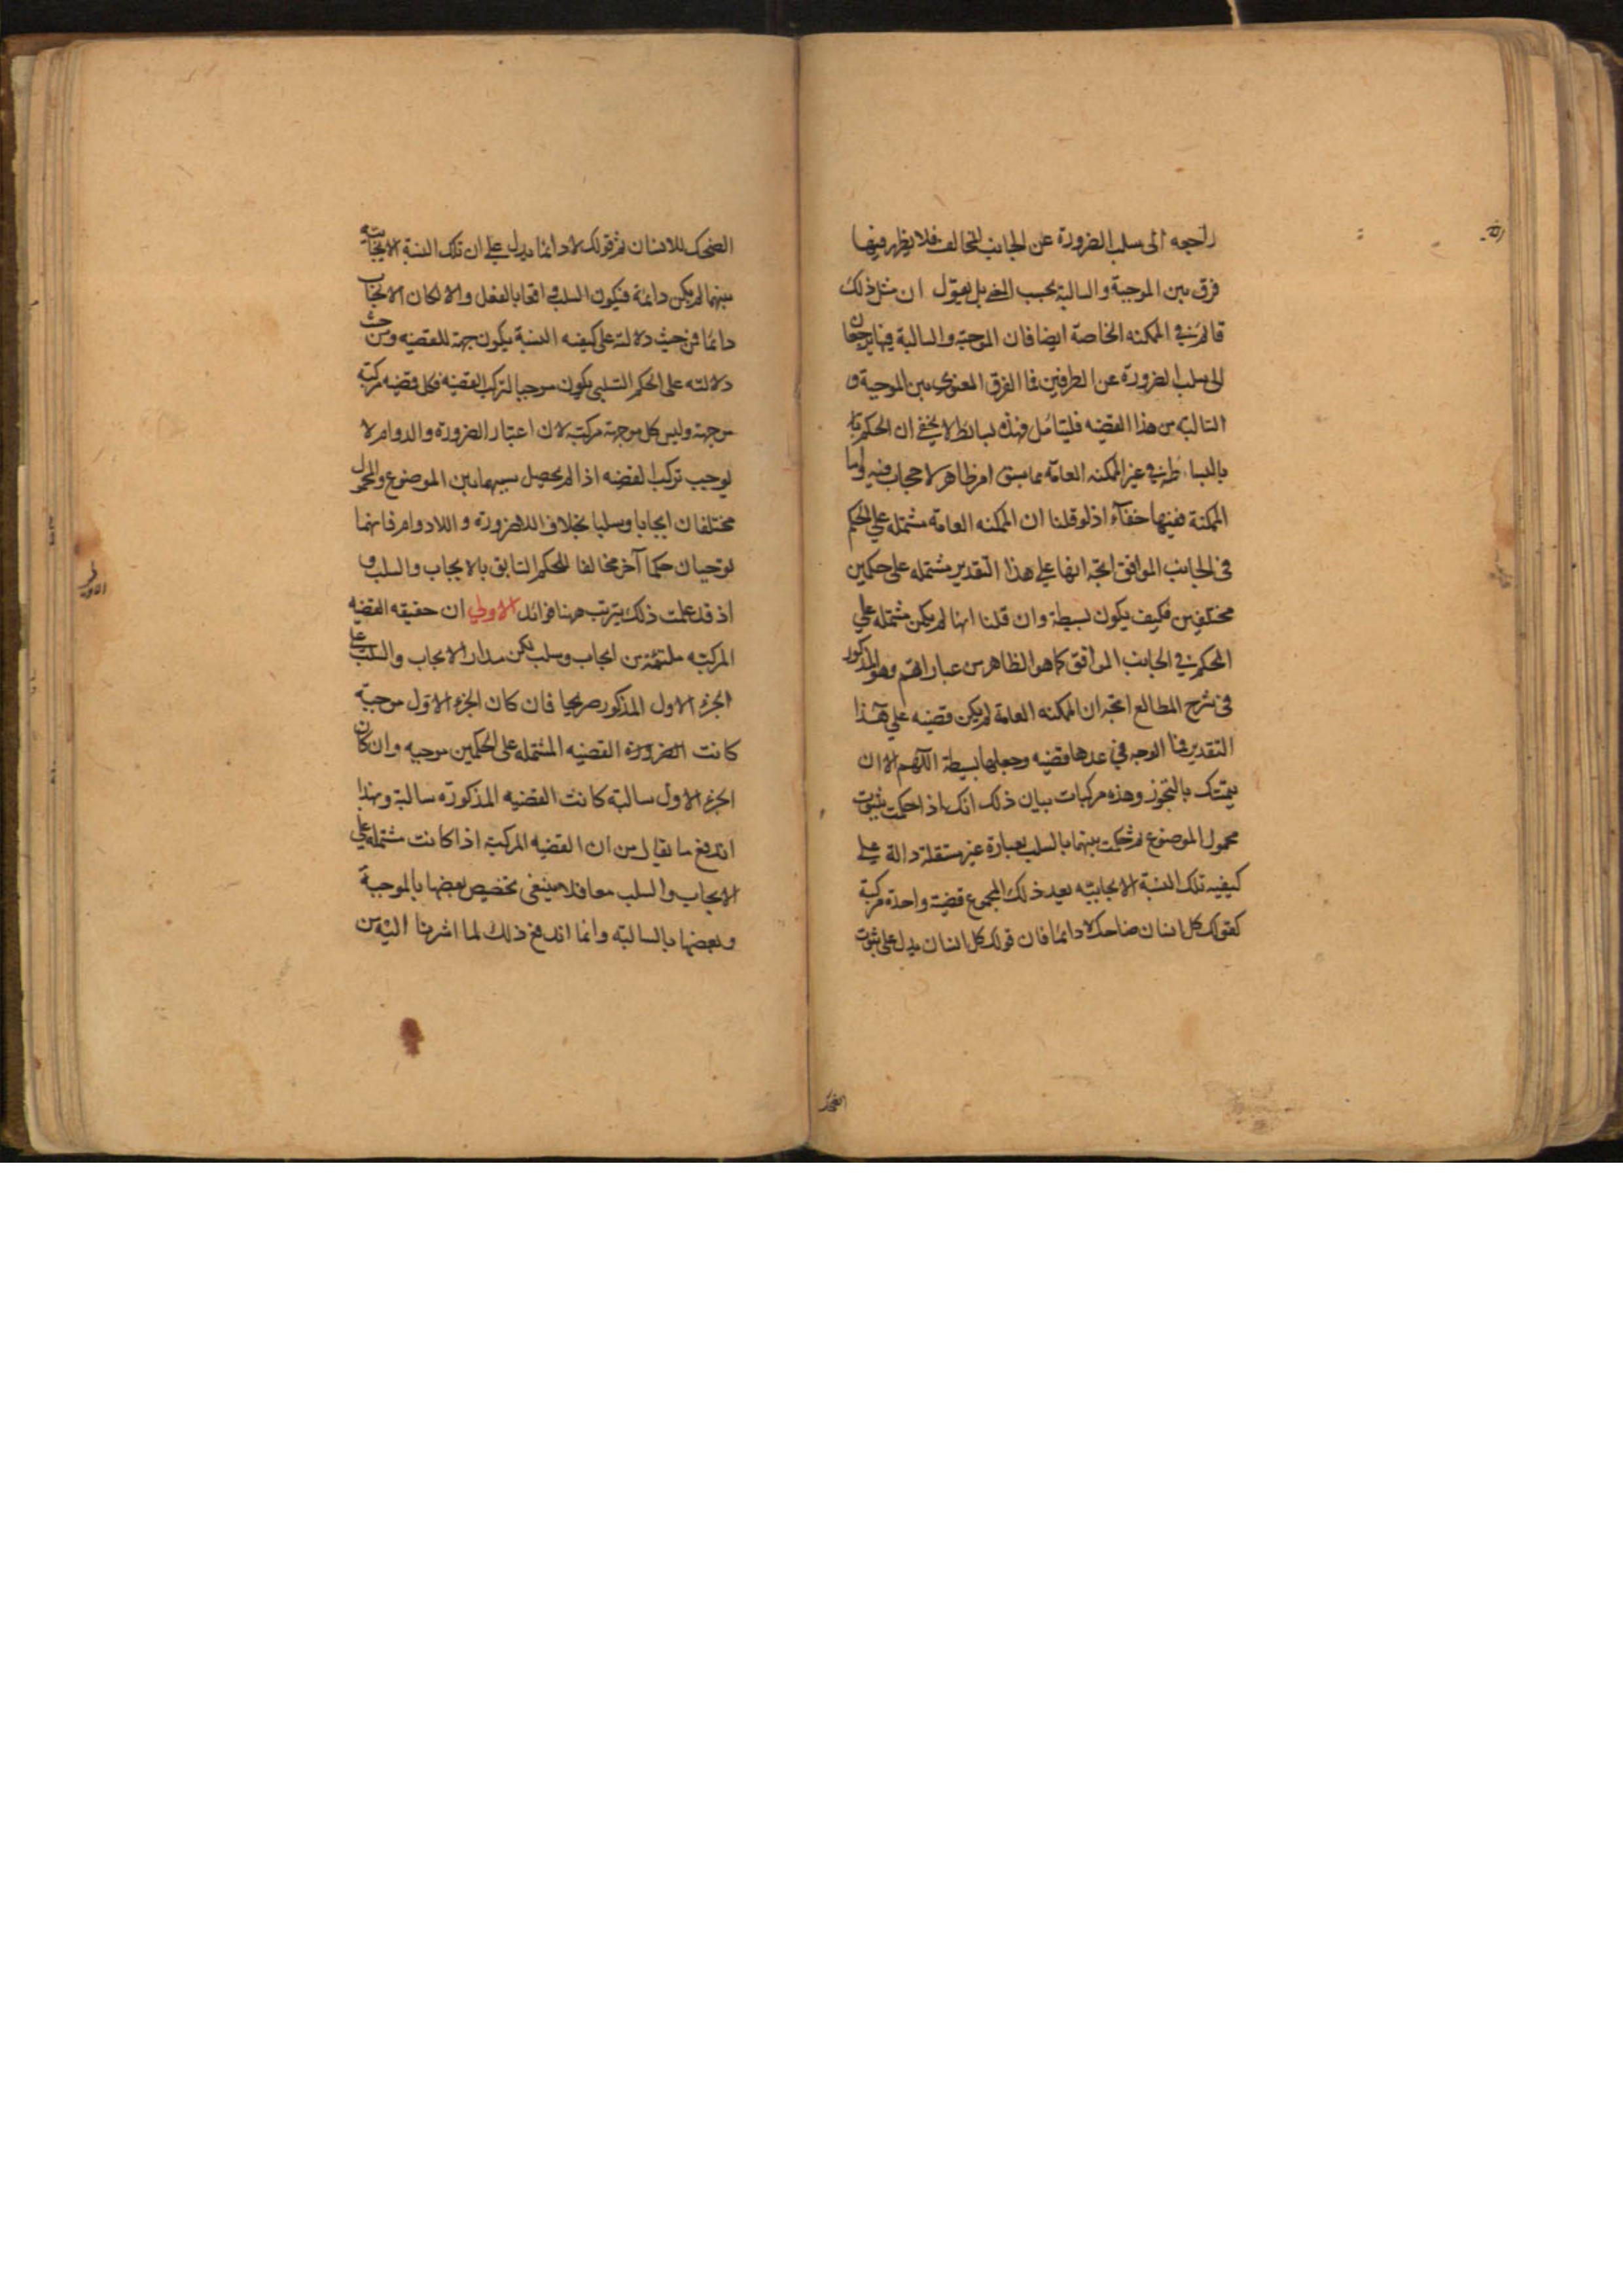 راجعه الى سلب الضرورة عن الجانب المخالف فلا يظهر فيها
فرق بين الموجبة والسالبة بحسب المعنى بل نقول ان مثل ذلك
قائم في الممكنه الخاصة ايضا فان الموجبة والسالبة فيها يرجعان
الى سلب الضرورة عن الطرفين فما الفرق المعنوى بين الموجبة و
السالبة من هذا القضيه فليتامل فهذه بسائط لا يخفى ان الحكم
بالبساطة في غير الممكنه العامة مما سبق امر ظاهر لا حجاب فيه واما
الممكنة ففيها خفآء اذ لو قلنا ان الممكنه العامة مشتمله على الحكم
فى الجانب الموافق اتجه انها على هذا التقدير مشتمله على حكمين
مختلفين فكيف يكون بسيطة وان قلنا انها لم يكن مشتمله على
الحكم في الجانب الموافق كما هو الظاهر من عباراتهم وهو المذكور
فى شرح المطالع اتجه ان الممكنه العامة لم يكن قضيه على هذا
التقدير فما الوجه في عدها قضيه وجعلها بسيطة اللهم الا ان
يتمسك بالتجوز وهذه مركبات بيان ذلك انك اذا حكمت بثبوت
محمول الموضوع ثم حكمت بينهما بالسلب بعبارة غير مستقلة دالة على
كيفيه تلك النسبة الايجابيه يعد ذلك المجموع قضية واحدة مركبة
كقولك كل انسان ضاحك لا دائما فان قولك كل انسان يدل على ثبوت
الضحك
الضحك للانسان ثم قولك لا دائما يدل على ان تلك النسبة الايجابية
بينهما لم يكن دائمة فيكون السلب واقعا بالفعل والا لكان الايجاب
دائما فمن حيث دلالته على كيفيه النسبة يكون جهة للقضيه ومن حيث
دلالته على الحكم السلبى يكون موجبا لتركب القضيه فكل قضيه مركبة
موجهة وليس كل موجهة مركبة لان اعتبار الضرورة والدوام لا
يوجب تركب القضيه اذا لم يحصل بسببهما بين الموضوع والمحمول
مختلفان ايجابا وسلبا بخلاف اللاضرورة واللادوام فانهما
يوجبان حكما آخر مخالفا للحكم السابق بالايجاب والسلب و
اذ قد علمت ذلك يترتب ههنا فوائد الاولى ان حقيقه القضيه
المركبة ملتئمة من ايجاب وسلب لكن مدار الايجاب والسلب على
الجزء الاول المذكور صريحا فان كان الجزء الاول موجبة
كانت الضرورة القضيه المشتمله على الحكمين موجبه وان كان
الجزء الاول سالبة كانت القضيه المذكورة سالبة وبهذا
اندفع ما يقال من ان القضيه المركبة اذا كانت مشتمله على
الايجاب والسلب معا فلا ينبغى تخصيص بعضها بالموجبة
وبعضها بالسالبة وانما اندفع ذلك لما اشرنا اليه من